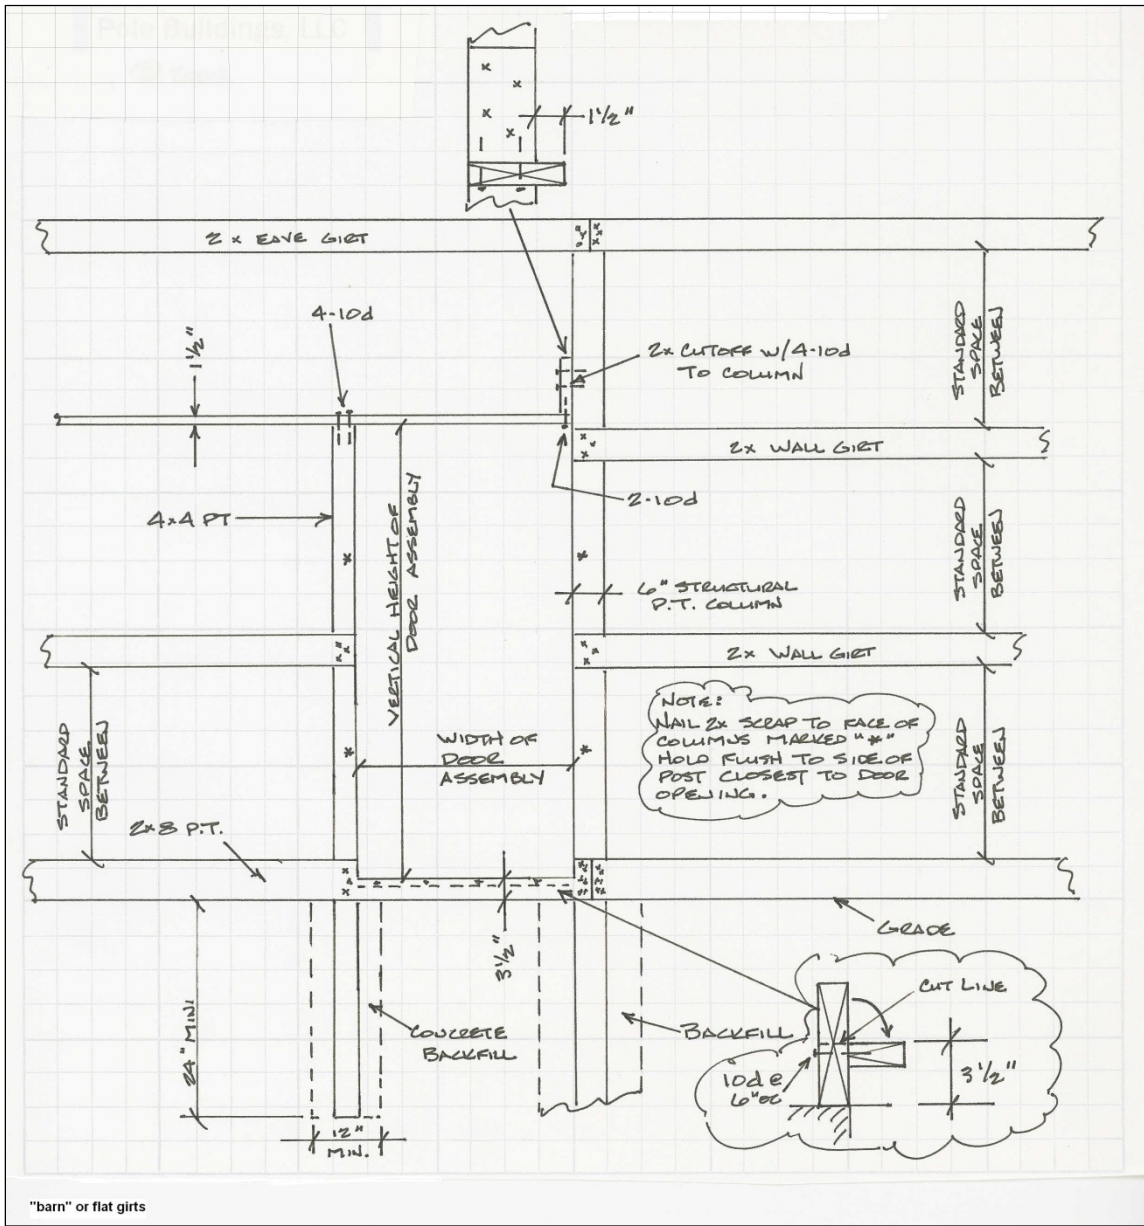 Pole Buildings, LLC
1 1/2"
2 x EAVE GIRT
4-10d
1 1/2"
2x CUTOFF W/4-10d
TO COLUMN
STANDARD
SPACE
BETWEEN
2x WALL GIRT
2-10d
4x4 PT
VERTICAL HEIGHT OF
DOOR ASSEMBLY
6" STRUCTURAL
P.T. COLUMN
STANDARD
SPACE
BETWEEN
2x WALL GIRT
NOTE:
NAIL 2x SCRAP TO FACE OF
COLUMNS MARKED "*"
HOLD FLUSH TO SIDE OF
POST CLOSEST TO DOOR
OPENING.
WIDTH OF
DOOR
ASSEMBLY
STANDARD
SPACE
BETWEEN
STANDARD
SPACE
BETWEEN
2x8 P.T.
3 1/2"
GRADE
24" MIN.
CONCRETE
BACKFILL
BACKFILL
CUT LINE
10d @
6"oc
3 1/2"
12"
MIN.
"barn" or flat girts